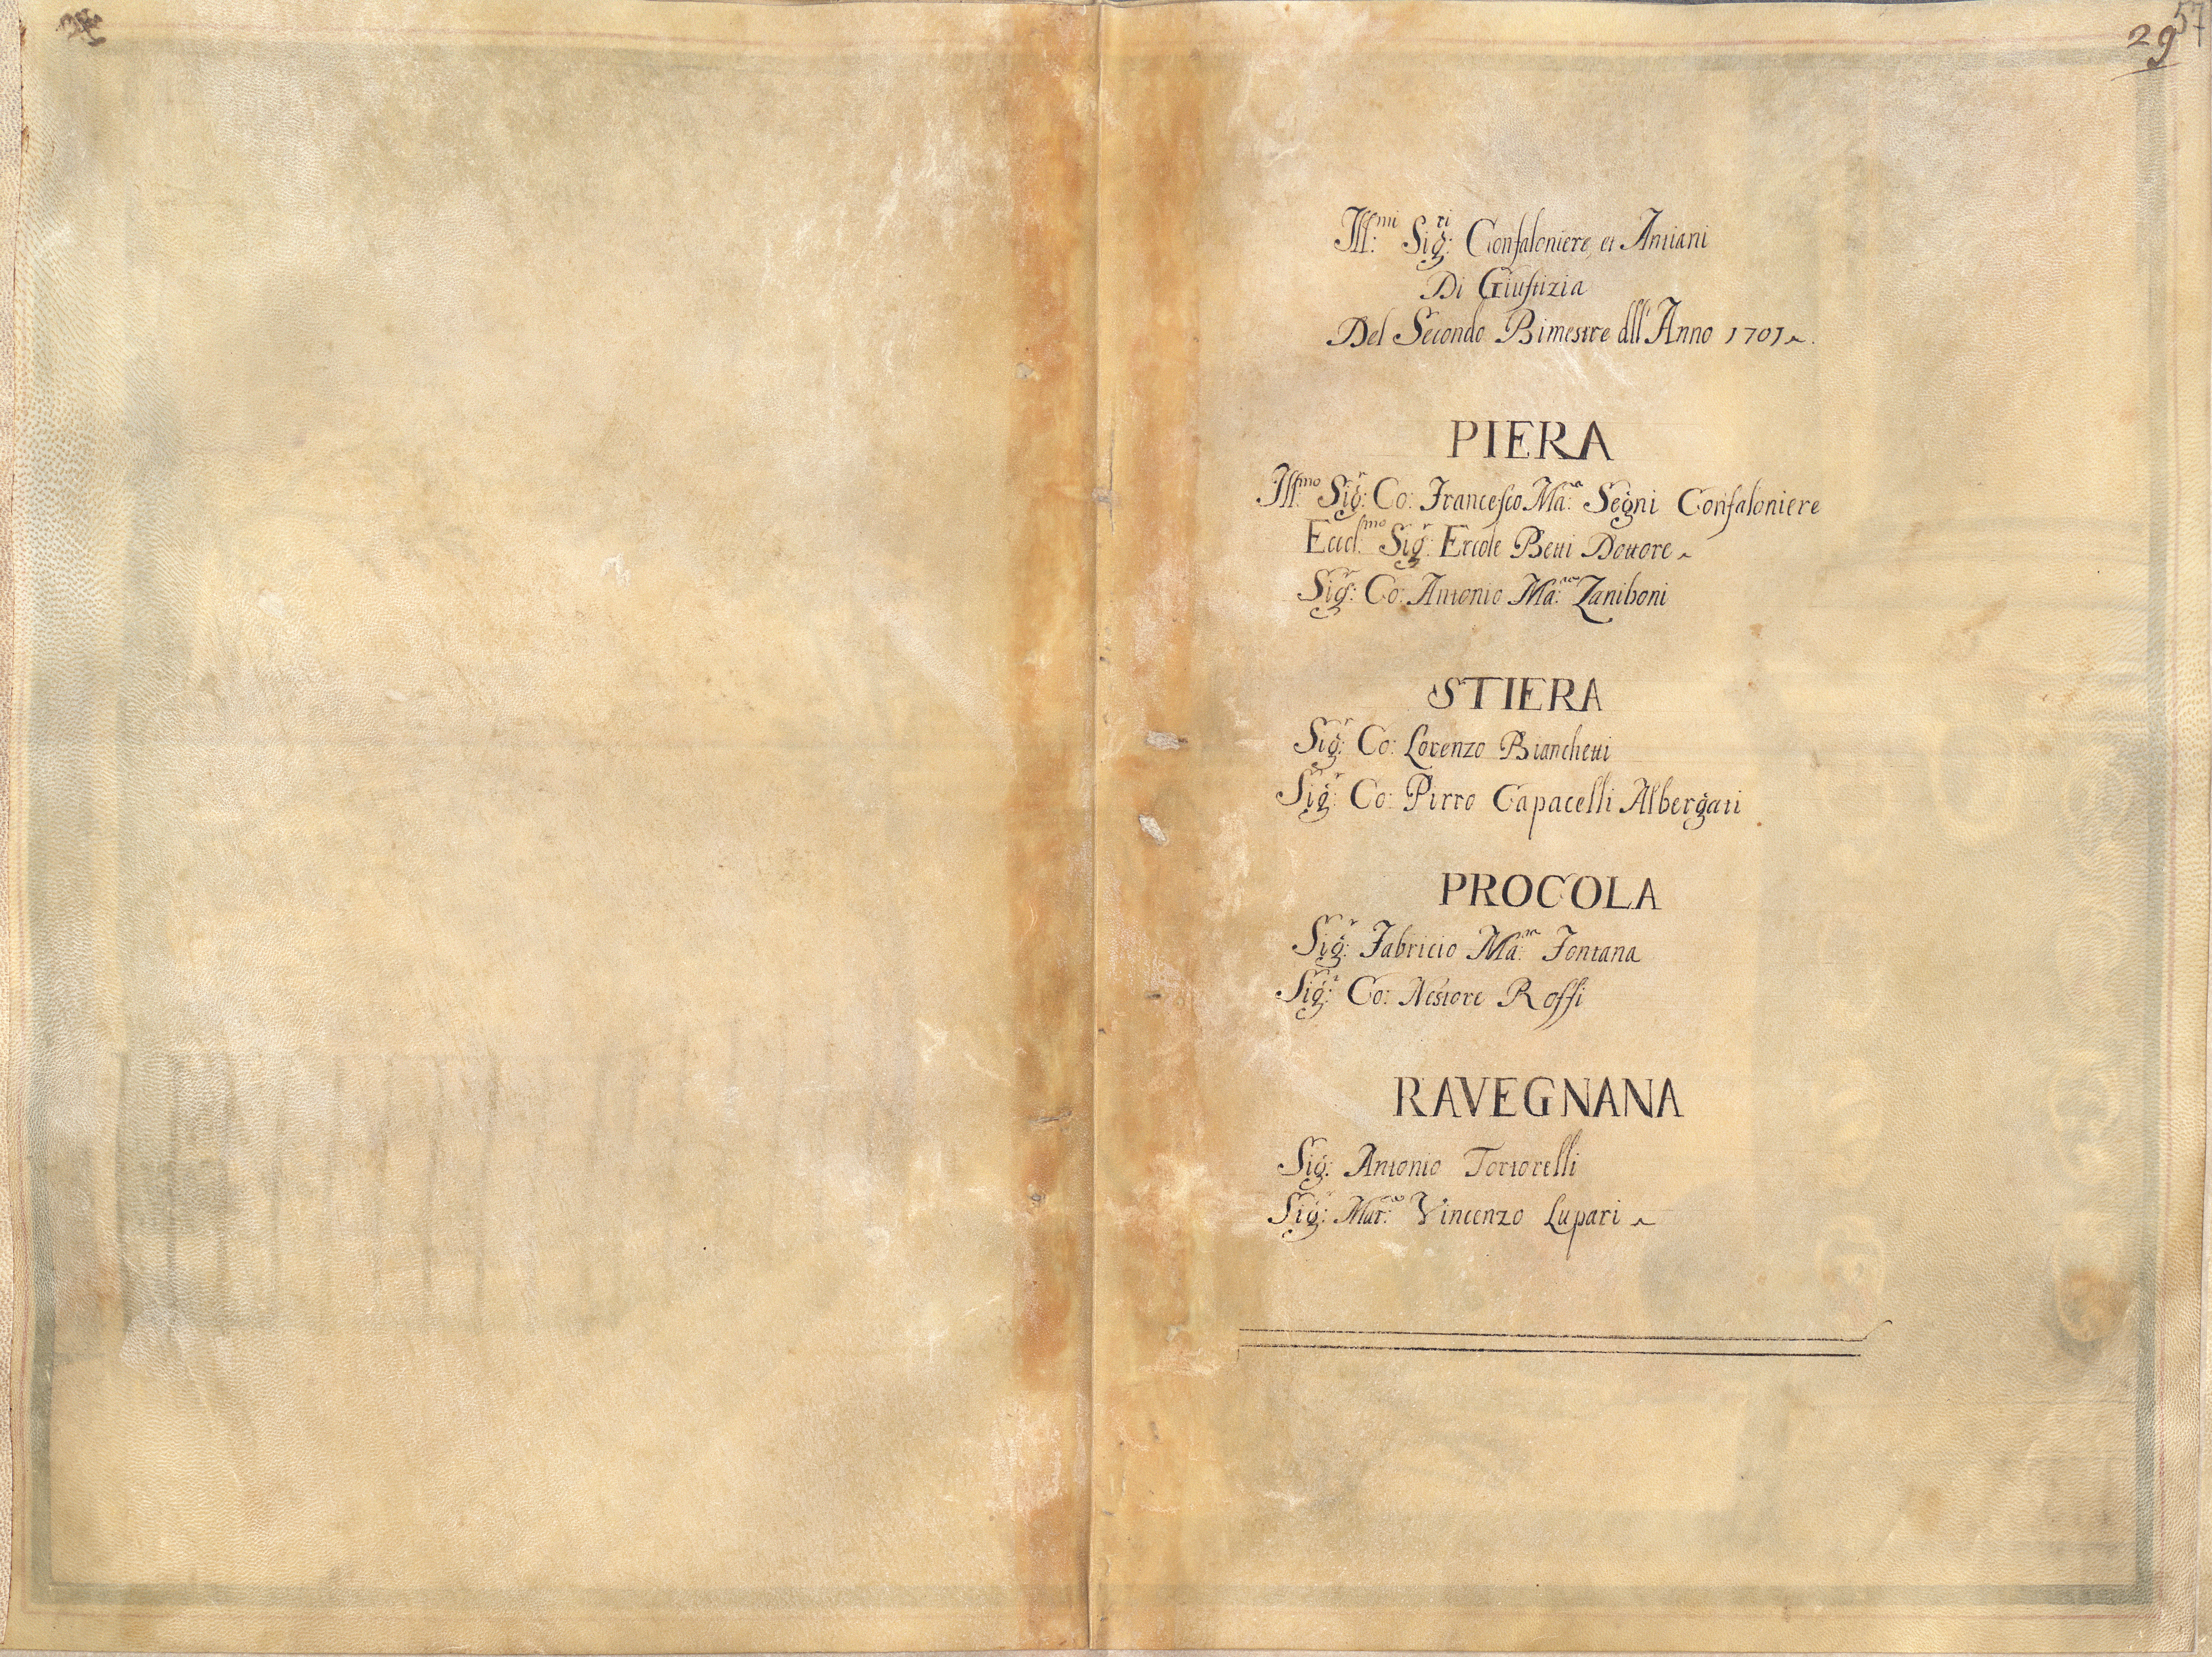 57
29
Ill:mi Sig:ri Confaloniere, et Antiani
Di Giustizia
Del Secondo Bimestre dll'Anno 1701
PIERA
Ill:mo Sig:r Co: Francesco Ma:a Segni Confaloniere
Eccl:mo Sig:r Ercole Betti Dottore
Sig:r Co: Antonio Ma:a Zaniboni
STIERA
Sig:r Co: Lorenzo Bianchetti
Sig:r Co: Pirro Capacelli Albergati
PROCOLA
Sig:r Fabricio Ma:a Fontana
Sig:r Co: Nestore Rossi
RAVEGNANA
Sig: Antonio Tortorelli
Sig:r Mar: Vincenzo Lupari